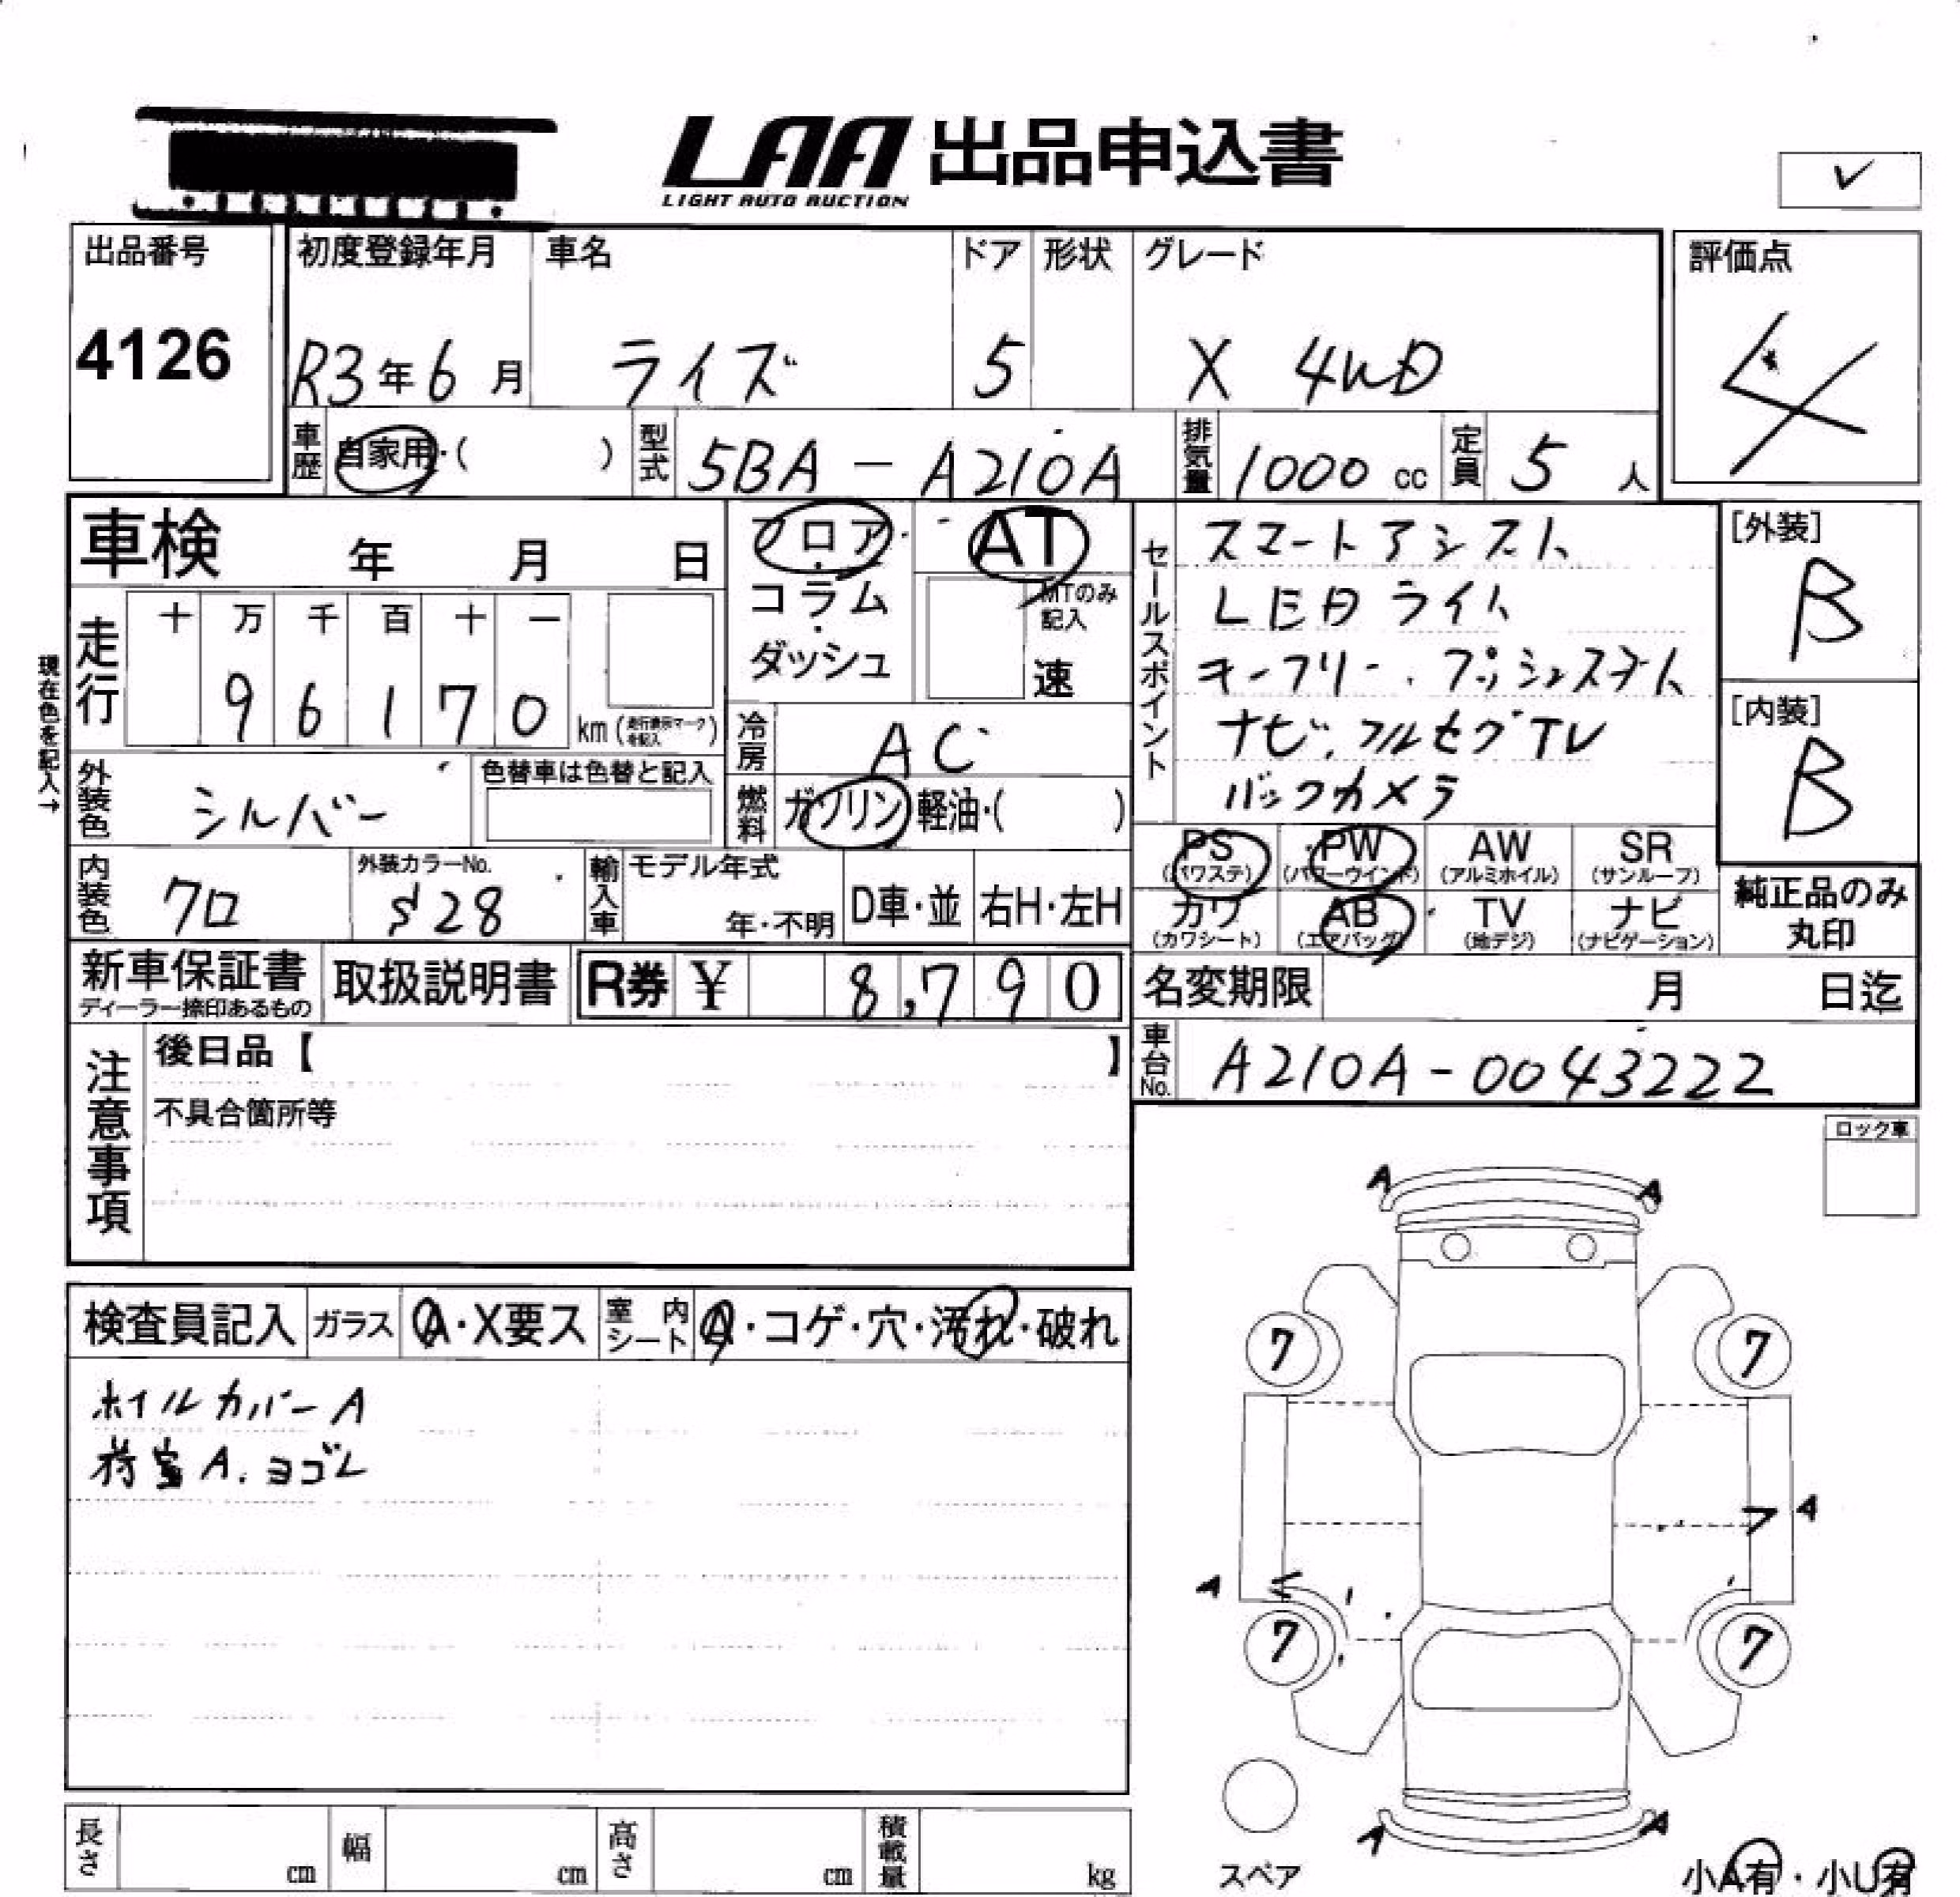 LAA 出品申込書
LIGHT AUTO AUCTION
出品番号
4126
初度登録年月
R3年6月
車名
ライズ
ドア
5
形状
グレード
X 4WD
評価点
4
車歴 自家用・( )
型式 5BA-A210A
排気量 1000 cc
定員 5 人
車検 年 月 日
フロア・
コラム
・
ダッシュ
AT
MTのみ
記入
速
セールスポイント
スマートアシスト
LEDライト
キーフリー・プッシュスタート
ナビ、フルセグTV
バックカメラ
[外装]
B
[内装]
B
現在色を記入→
走行
十 万 千 百 十 一
9 6 1 7 0 km(走行表示マークを記入)
冷房 AC
外装色 シルバー
色替車は色替と記入
燃料 ガソリン 軽油・( )
PS (パワステ)
PW (パワーウインド)
AW (アルミホイル)
SR (サンルーフ)
カワ (カワシート)
AB (エアバッグ)
TV (地デジ)
ナビ (ナビゲーション)
純正品のみ
丸印
内装色 クロ
外装カラーNo.
S28
輸入車
モデル年式
年・不明
D車・並
右H・左H
新車保証書
ディーラー捺印あるもの
取扱説明書
R券 ¥ 8,790
名変期限 月 日迄
車台No. A210A-0043222
注意事項
後日品【 】
不具合箇所等
ロック車
検査員記入
ガラス A・X要ス
室内シート A・コゲ・穴・汚れ・破れ
ホイルカバーA
荷室A.ヨゴレ
A A
7 7
A
A
7 7
A A
スペア
小A有・小U有
長さ cm
幅 cm
高さ cm
積載量 kg